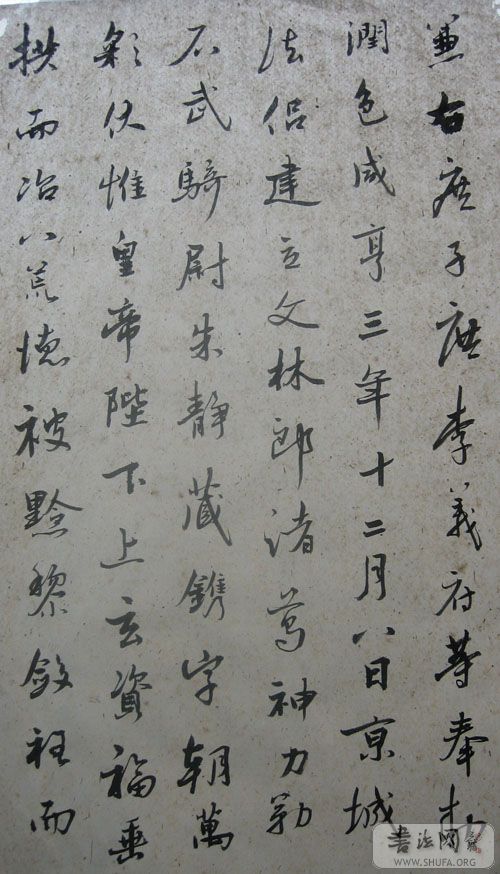 兼右庶子庶李義府等奉
潤色咸亨三年十二月八日京城
法侶建立文林郎諸葛神力勒
石武騎尉朱靜藏鐫字朝萬
彩伏惟皇帝陛下上玄資福垂
拱而治八荒德被黔黎斂衽而
书法网
WWW.SHUFA.ORG